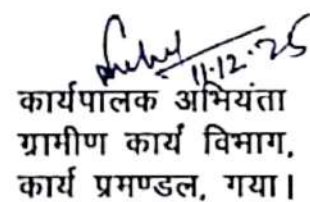 11.12.25
कार्यपालक अभियंता
ग्रामीण कार्य विभाग,
कार्य प्रमण्डल, गया।